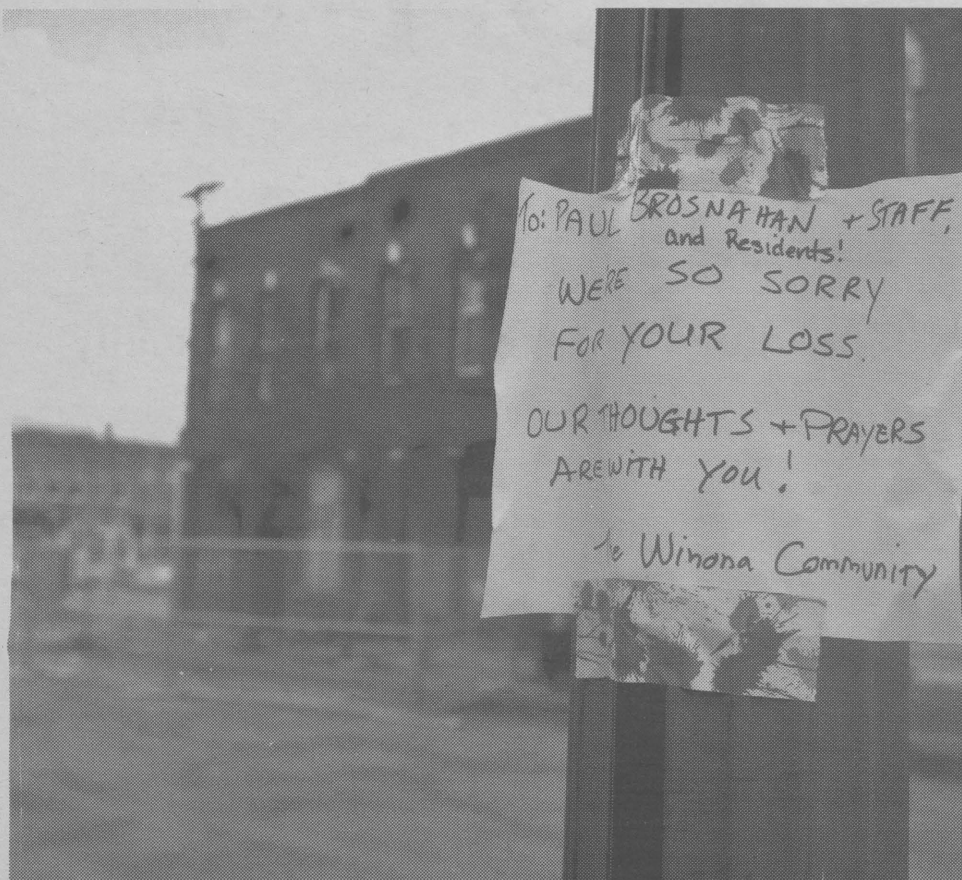 To: PAUL BROSNAHAN + STAFF,
and Residents!
WE'RE SO SORRY
FOR YOUR LOSS.
OUR THOUGHTS + PRAYERS
ARE WITH YOU!
the Winona Community